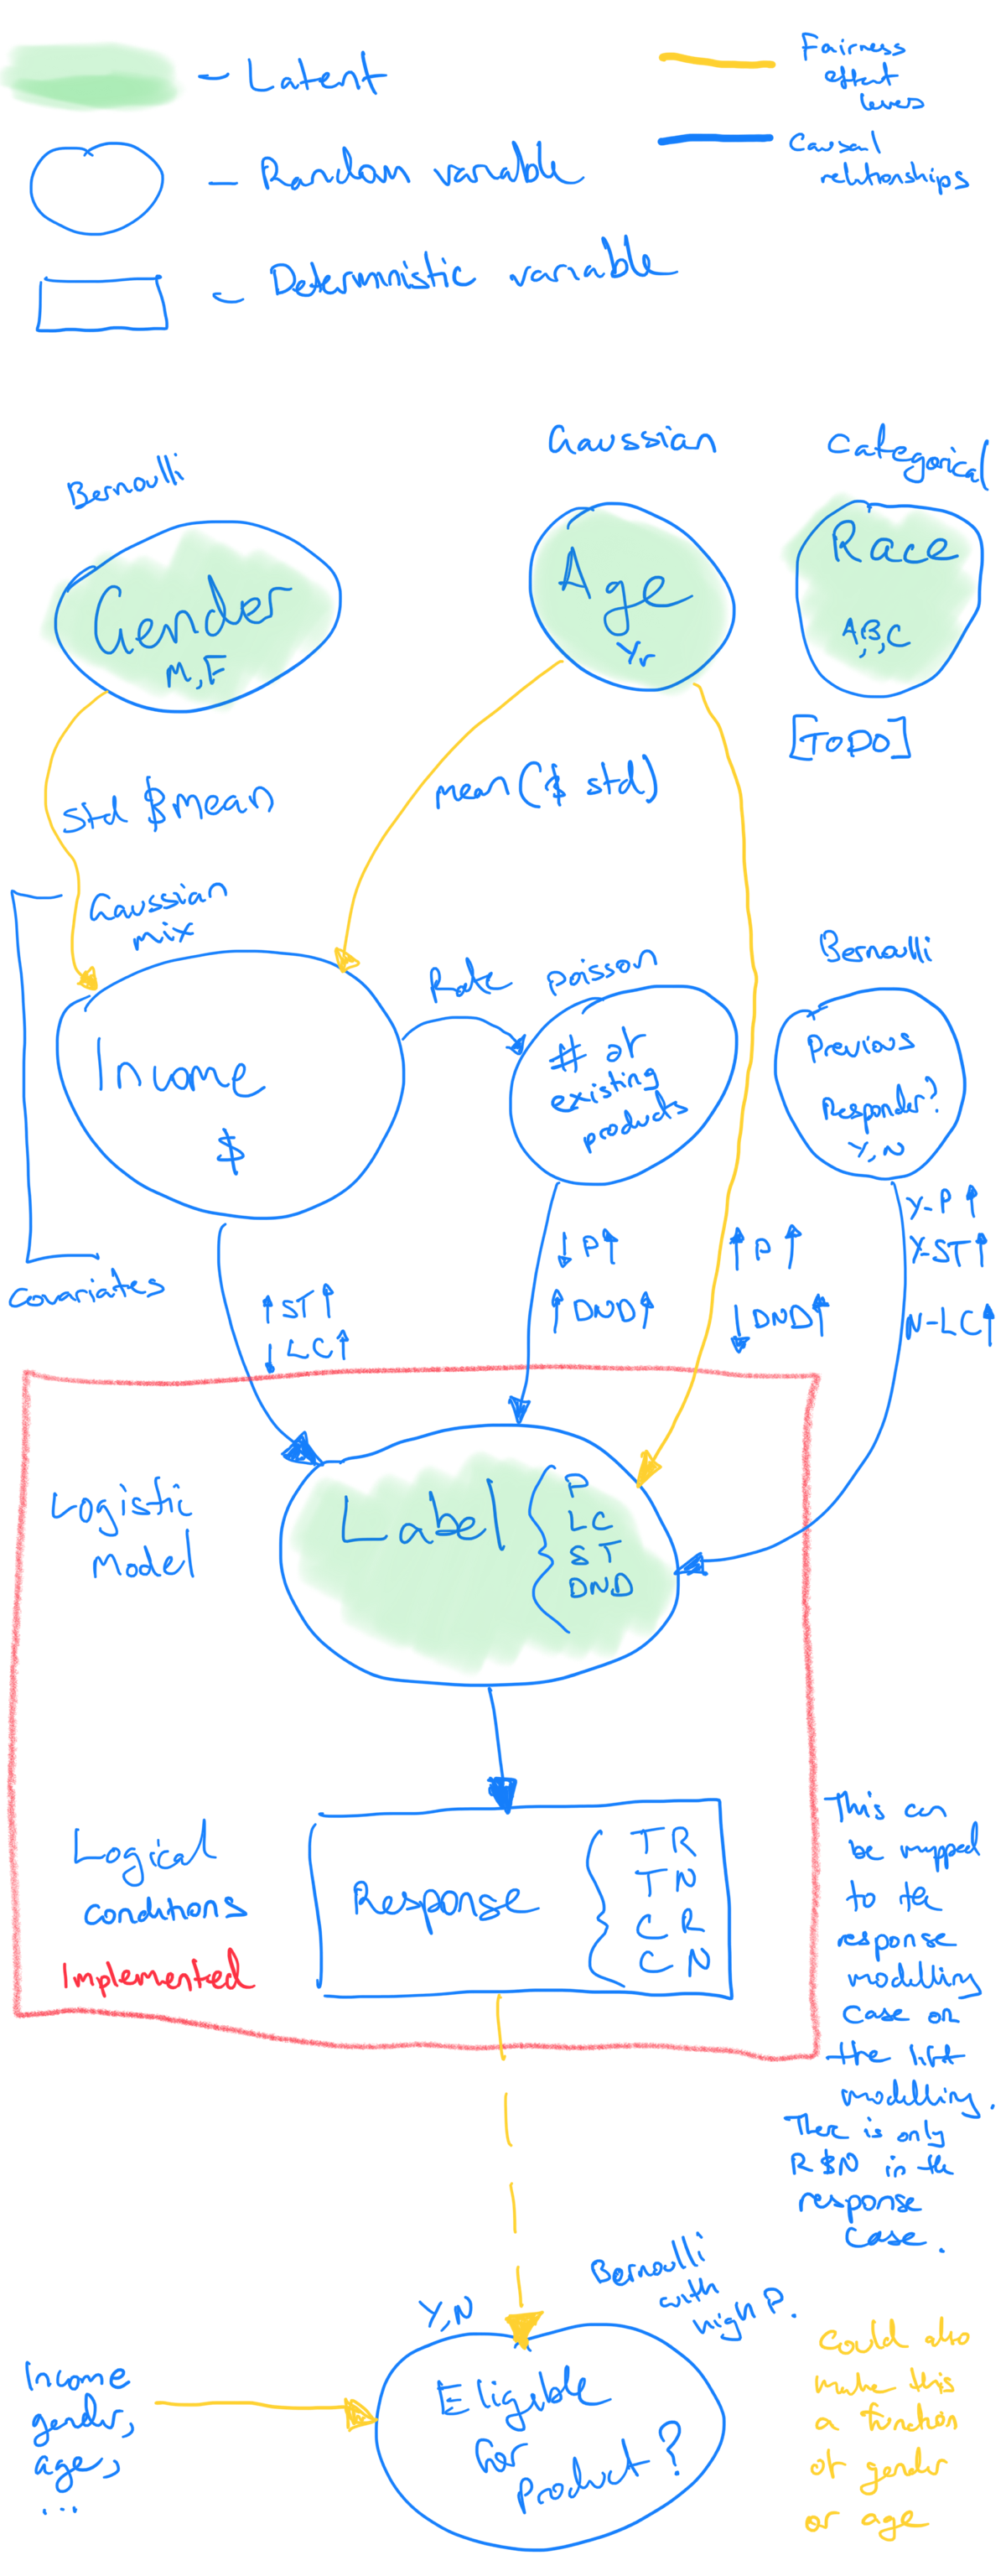 - Latent
Fairness
effect
levers
- Random variable
Causal
relationships
- Deterministic variable
Bernoulli
Gaussian
Categorical
Gender
M, F
Age
Yr
Race
A, B, C
[TODO]
std $ mean
mean ($ std)
Gaussian
mix
Income
$
Rate
Poisson
# of
existing
products
Bernoulli
Previous
Responder?
Y, N
Covariates
↑ ST ↑
↓ LC ↑
↓ P ↑
↑ DND ↑
↑ P ↑
↓ DND ↑
Y-P ↑
Y-ST ↑
N-LC ↑
Logistic
Model
Label
P
LC
ST
DND
Logical
conditions
Implemented
Response
TR
TN
CR
CN
This can
be mapped
to the
response
modelling
case or
the lift
modelling.
There is only
R & N in the
response
case.
Y, N
Bernoulli
with
high P.
Income
gender,
age,
...
Eligible
for
product?
Could also
make this
a function
of gender
or age